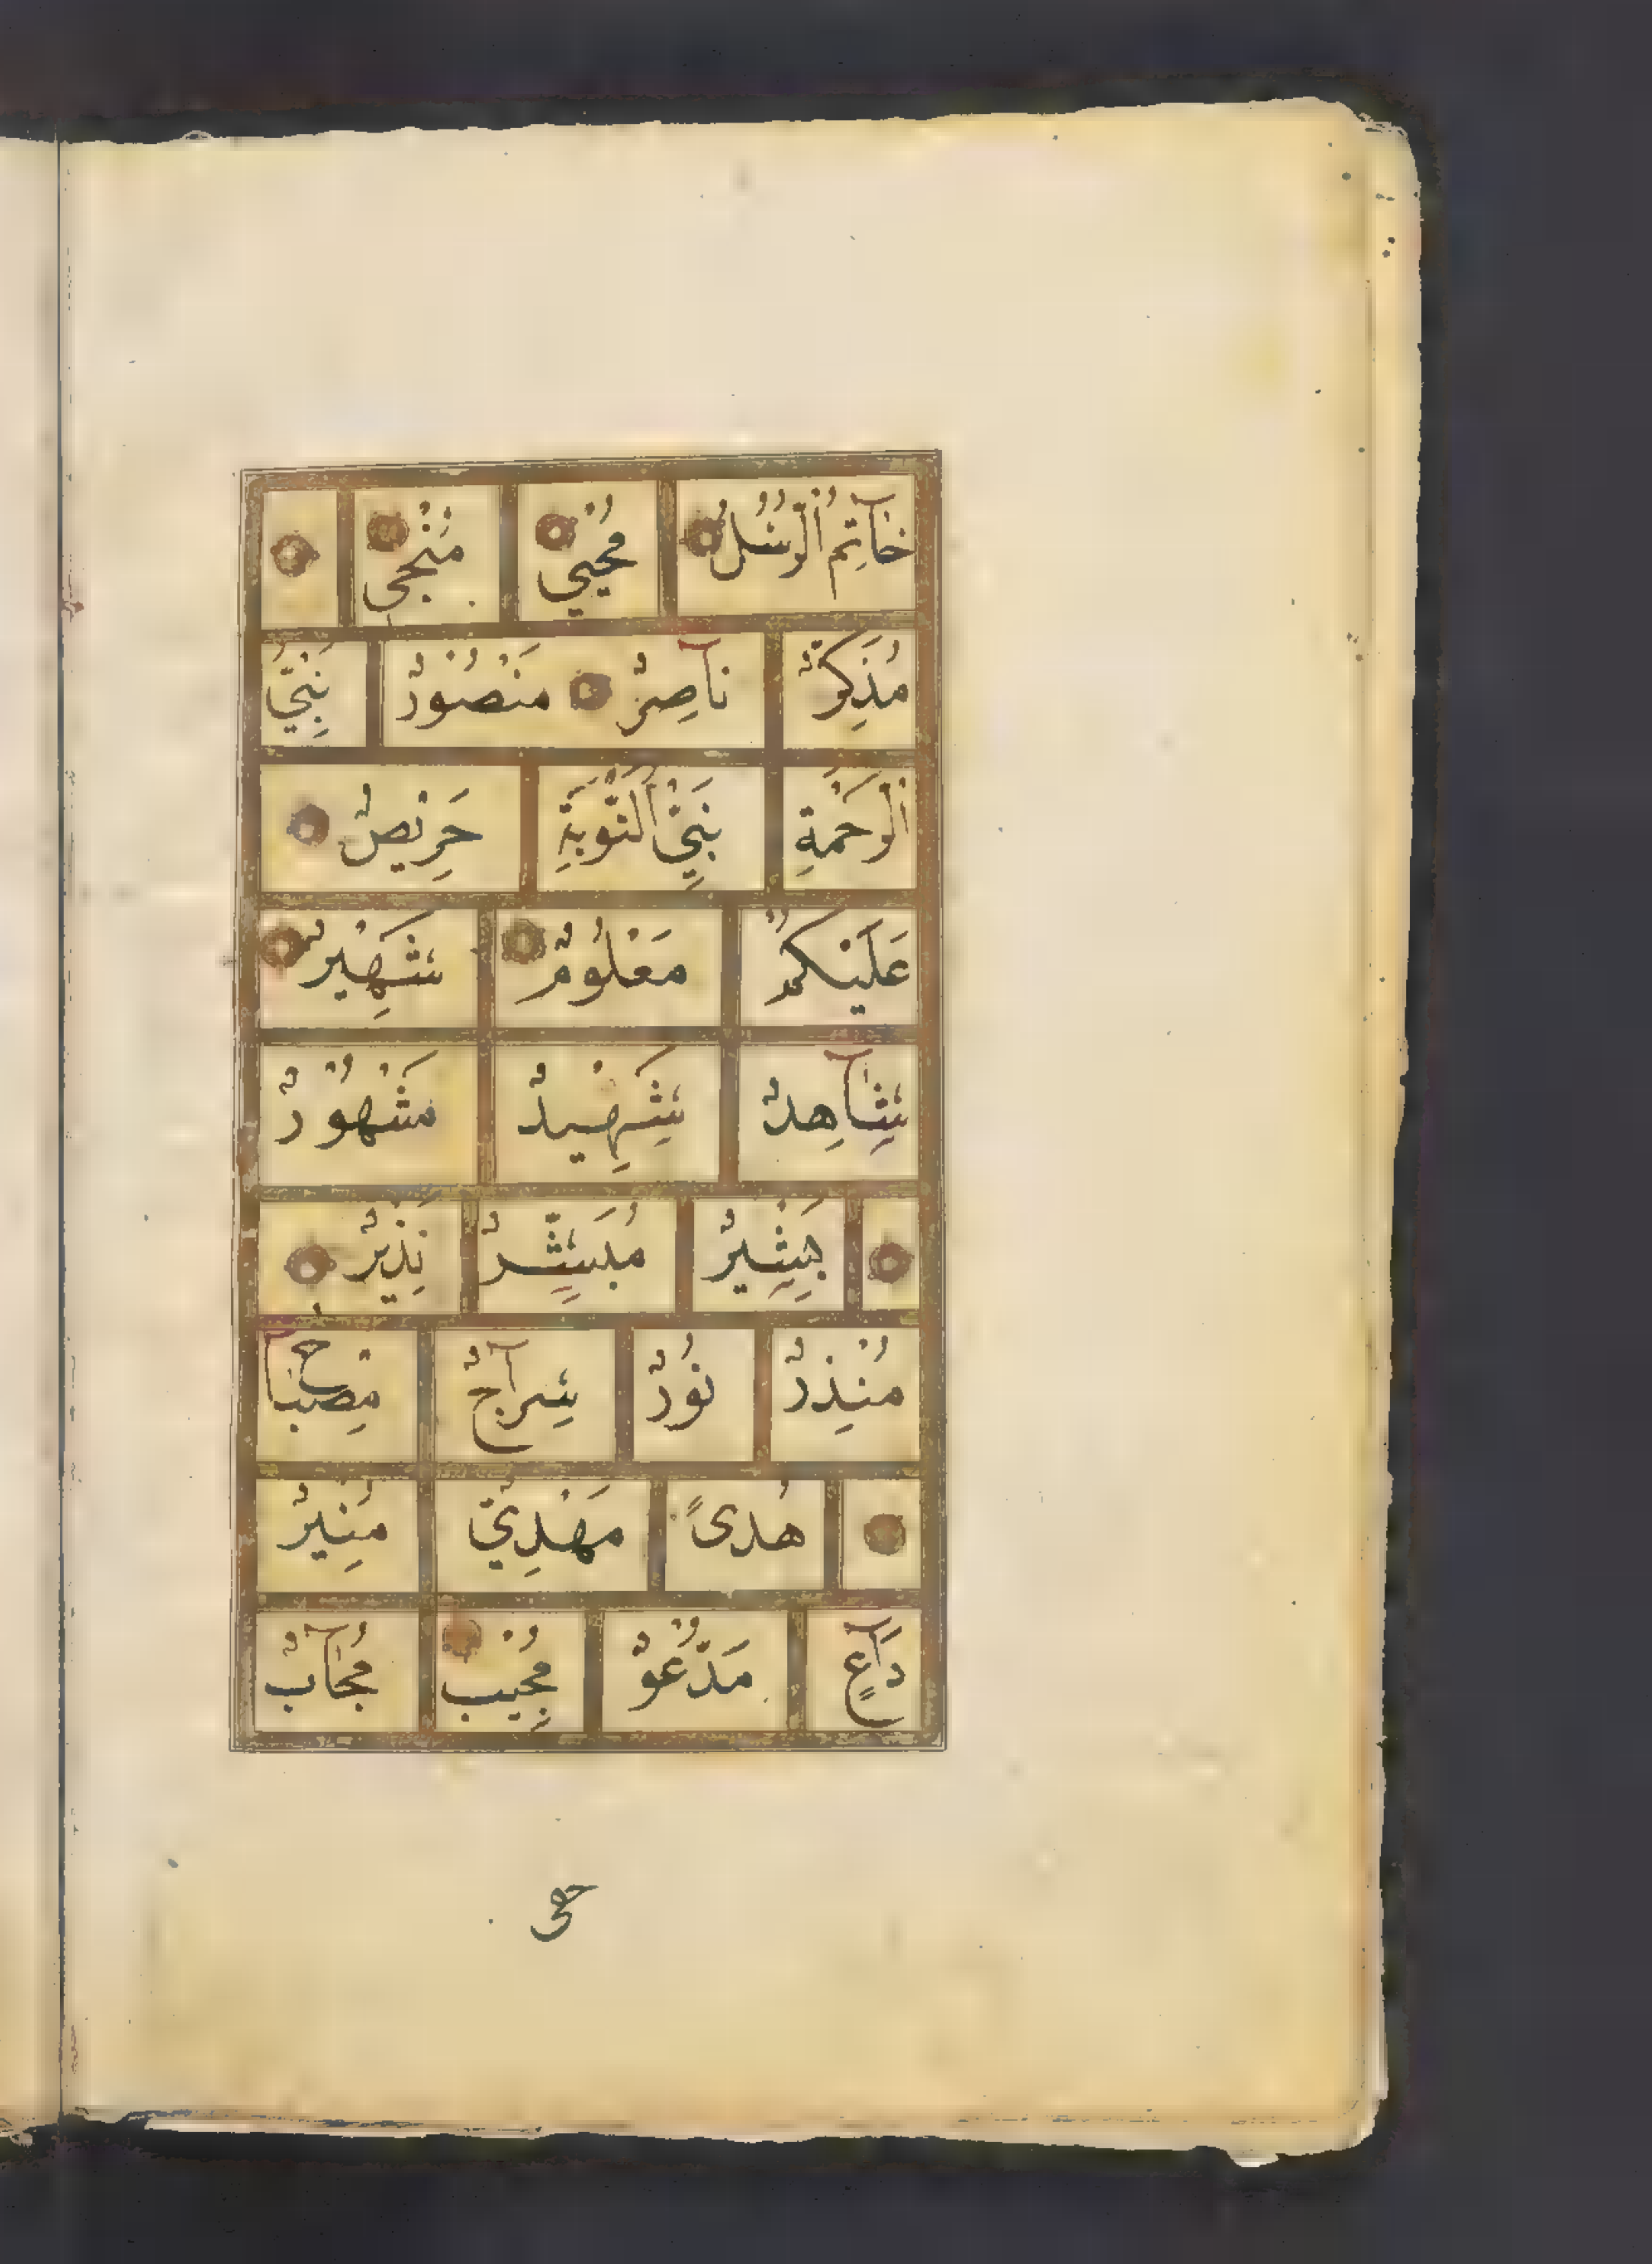 خَاتِمُ ٱلرُّسُلِ مُحْيِي مُنْجِي
مُذَكِّرٌ نَاصِرٌ مَنْصُورٌ نَبِيُّ
ٱلرَّحْمَةِ نَبِيُّ ٱلتَّوْبَةِ حَرِيصٌ
عَلَيْكُمْ مَعْلُومٌ شَهِيرٌ
شَاهِدٌ شَهِيدٌ مَشْهُودٌ
بَشِيرٌ مُبَشِّرٌ نَذِيرٌ
مُنْذِرٌ نُورٌ سِرَاجٌ مِصْبَاحٌ
هُدًى مَهْدِيٌّ مُنِيرٌ
دَاعٍ مَدْعُوٌّ مُجِيبٌ مُجَابٌ
حفي